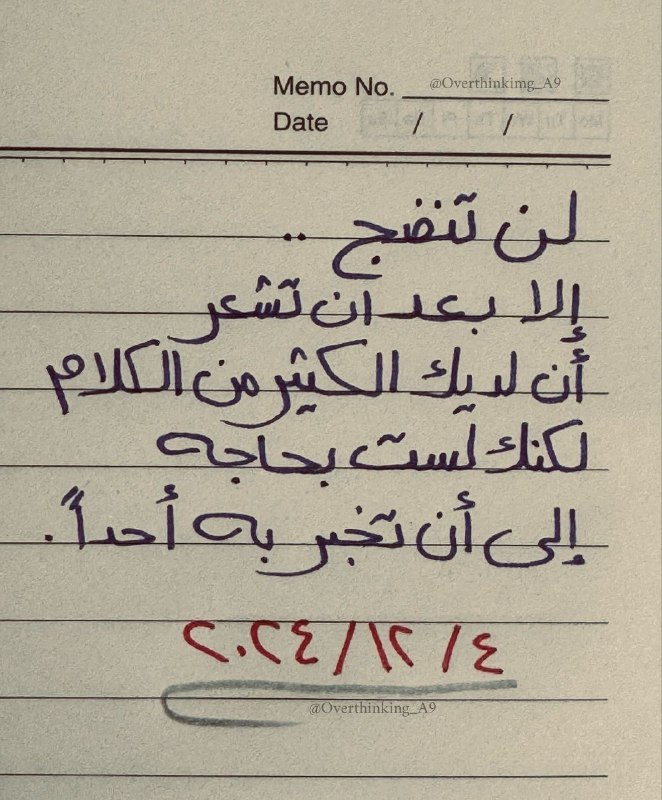 Memo No. @Overthinkimg_A9
Date / /
لن تنضج ..
إلا بعد ان تشعر
أن لديك الكثير من الكلام
لكنك لست بحاجه
إلى أن تخبر به أحداً .
٤ / ١٢ / ٢٠٢٤
@Overthinking_A9